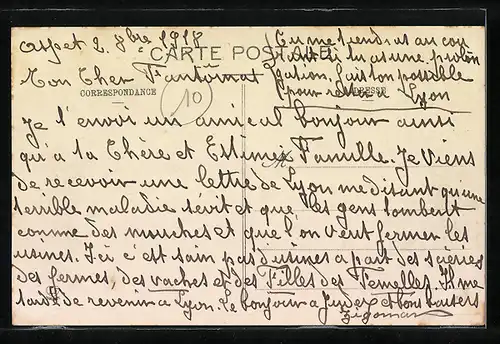 Aspet 2 8bre 1918
CARTE POSTALE
Tu me tiendras au cou
rant si tu as une prolon
gation. Fais ton possible
pour rester à Lyon
Mon Cher Fantomas
CORRESPONDANCE
ADRESSE
10
Je t'envoi un amical bonjour ainsi
qu'à ta Chère et Estimée Famille. Je Viens
de recevoir une lettre de Lyon me disant qu'une
terrible maladie sévit et que les gens tombent
comme des mouches et que l'on veut fermer les
usines. Ici c'est sain pas d'usines à part des scieries
des fermes des vaches et des Filles des Femelles. Il me
tarde de revenir à Lyon. Le bonjour à Judex et bons baisers
Zigomar